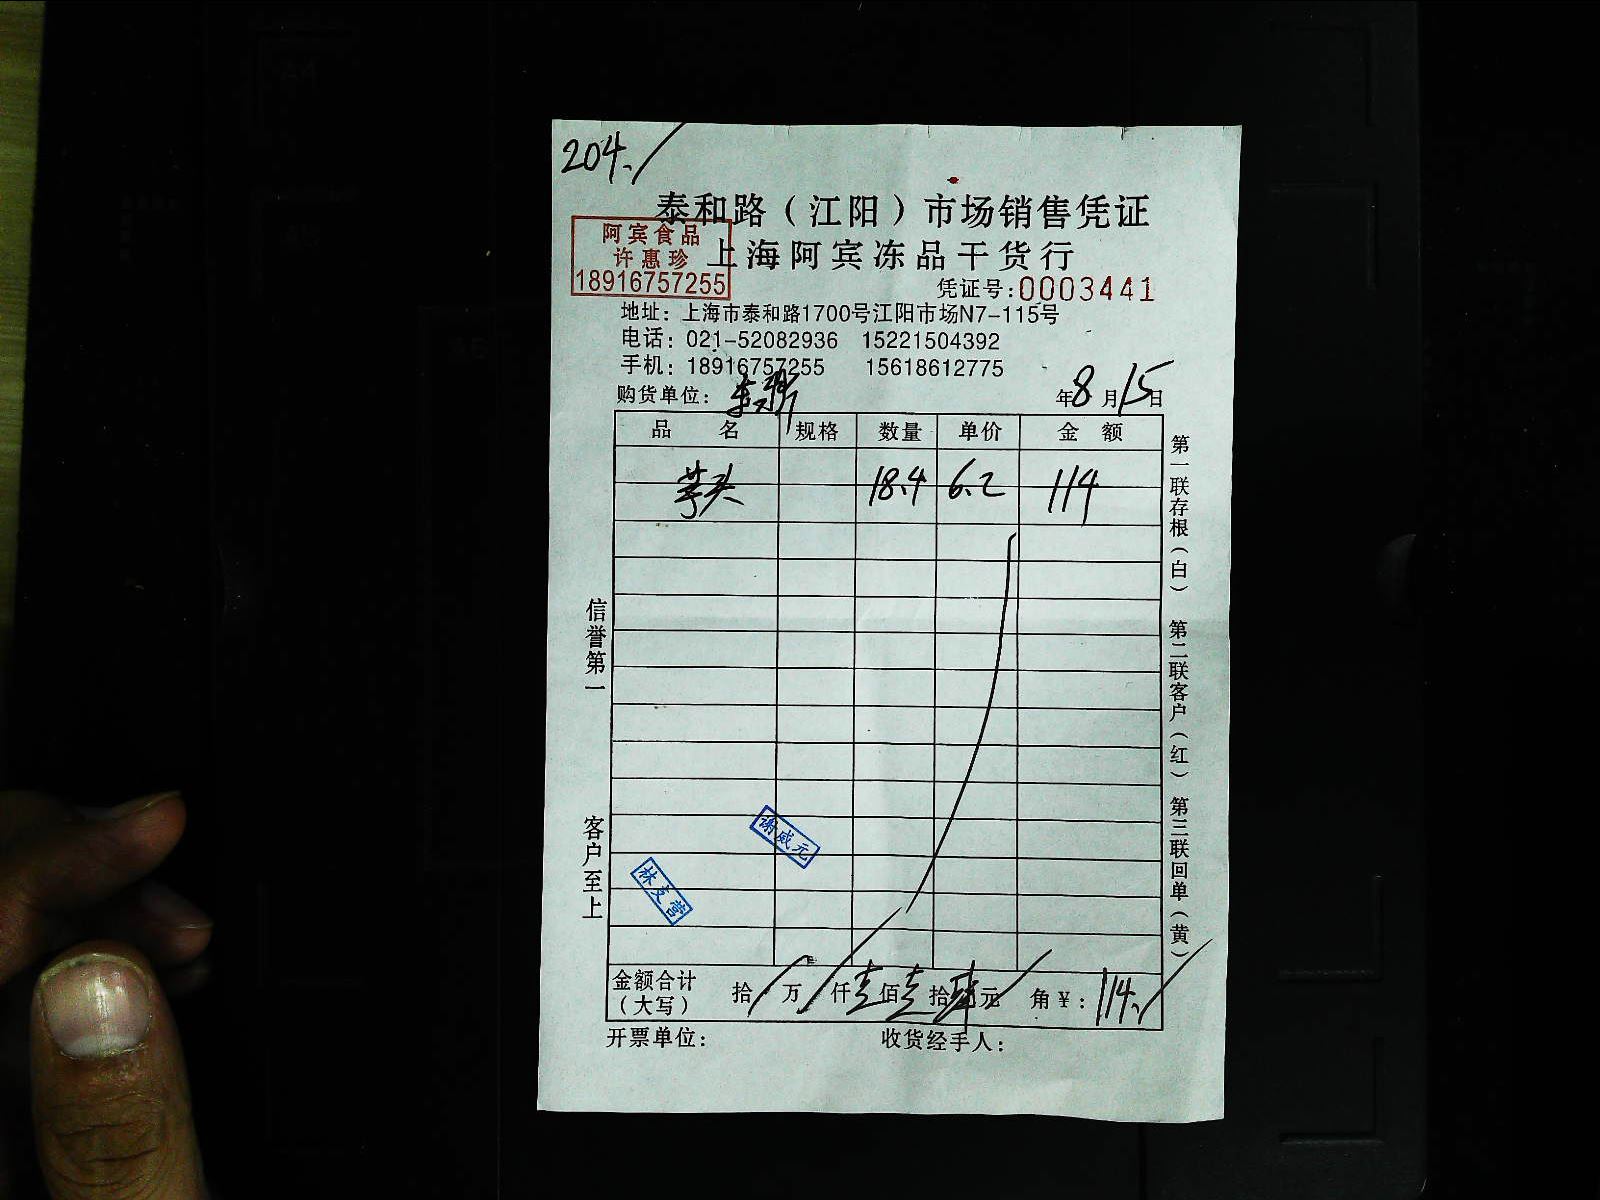 204.
泰和路（江阳）市场销售凭证
阿宾食品
许惠珍
18916757255
上海阿宾冻品干货行
凭证号：0003441
地址：上海市泰和路1700号江阳市场N7-115号
电话：021-52082936 15221504392
手机：18916757255 15618612775
购货单位： 年8月15日
品 名 规格 数量 单价 金 额
芋头 18.4 6.2 114
信誉第一 客户至上
第一联存根（白） 第二联客户（红） 第三联回单（黄）
谢威元
林支营
金额合计（大写） 拾 万 仟壹佰壹拾肆元 角￥：114.
开票单位： 收货经手人：